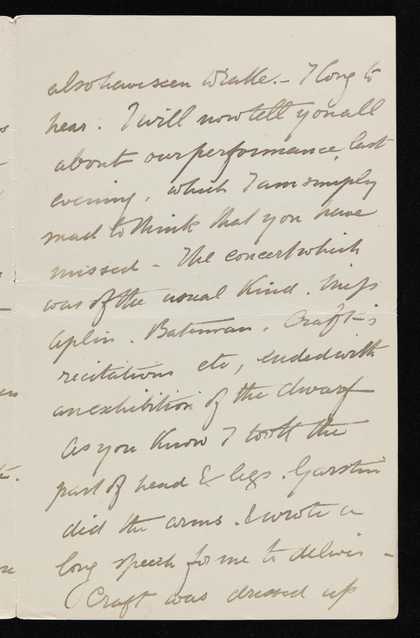 also have seen Wrake. - I long to
hear. I will now tell you all
about our performance, last
evening, which I am simply
mad to think that you have
missed - The concert which
was of the usual kind. Miss
Aplin. Bateman. Craft's
recitations etc, ended with
an exhibition of the dwarf
As you know I took the
part of head & legs. Garstin
did the arms. & wrote a
long speech for me to deliver -
Craft was dressed up